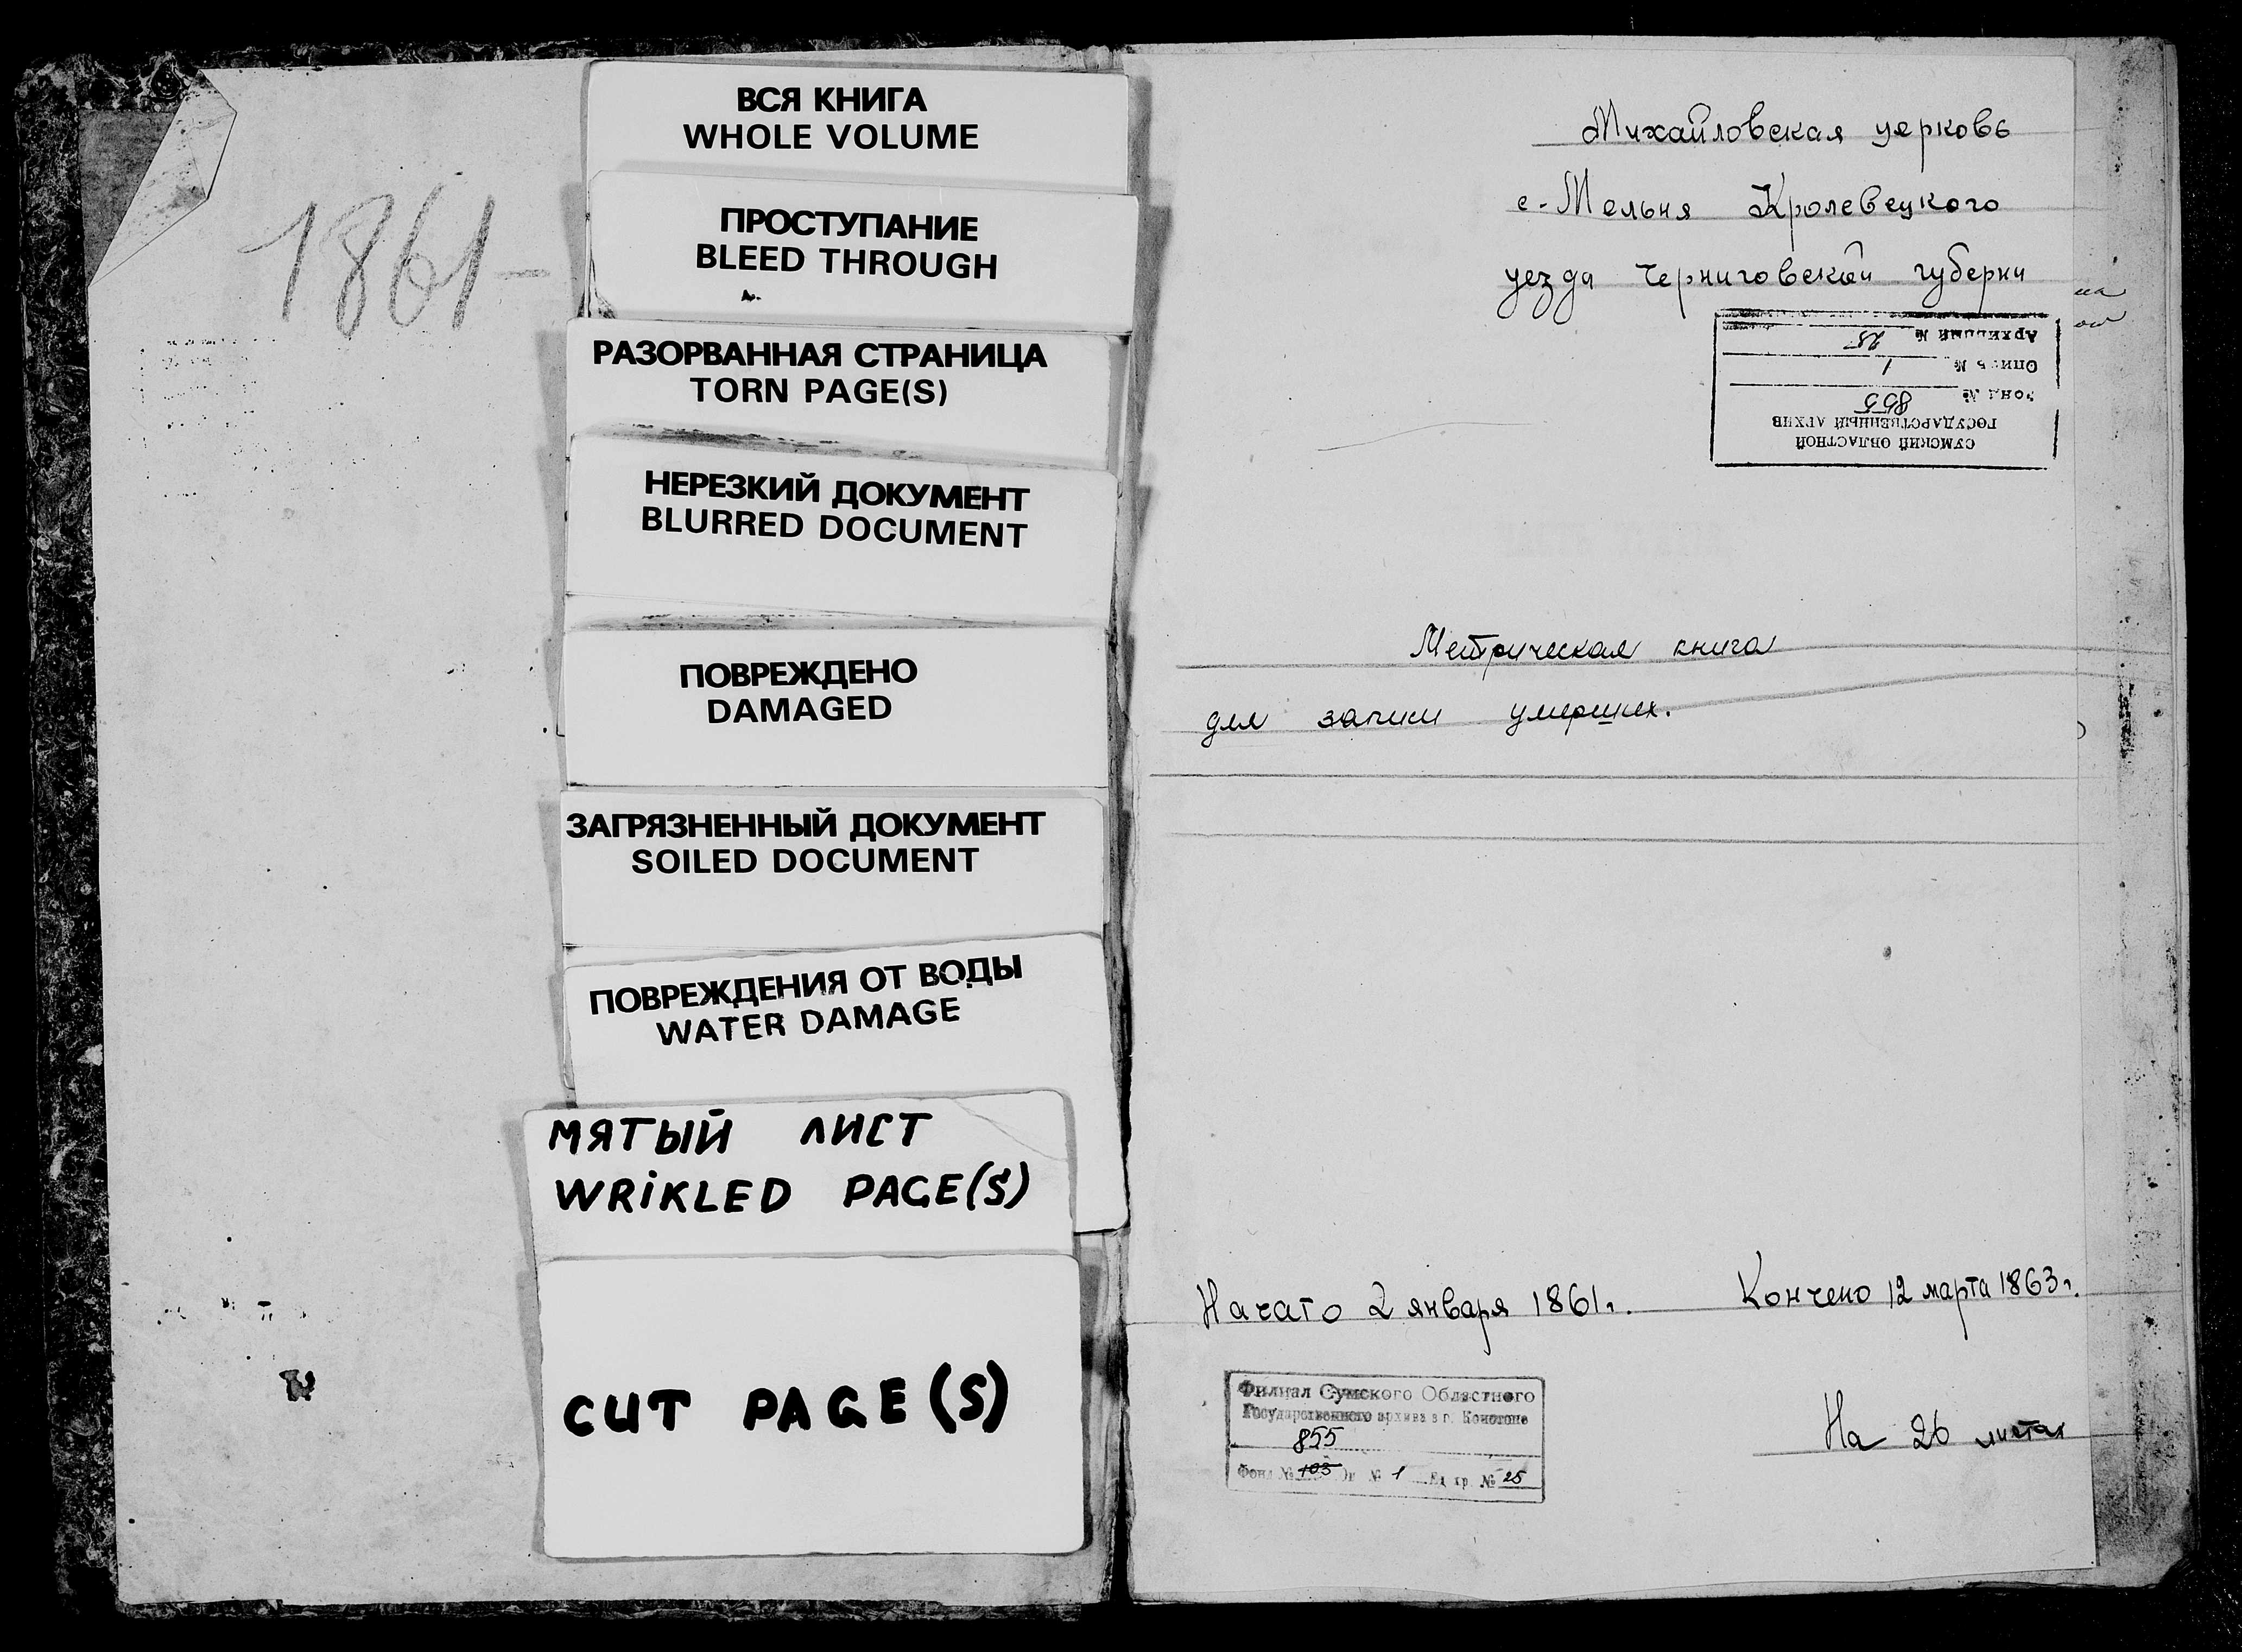 1861-
ВСЯ КНИГА
WHOLE VOLUME
ПРОСТУПАНИЕ
BLEED THROUGH
РАЗОРВАННАЯ СТРАНИЦА
TORN PAGE(S)
НЕРЕЗКИЙ ДОКУМЕНТ
BLURRED DOCUMENT
ПОВРЕЖДЕНО
DAMAGED
ЗАГРЯЗНЕННЫЙ ДОКУМЕНТ
SOILED DOCUMENT
ПОВРЕЖДЕНИЯ ОТ ВОДЫ
WATER DAMAGE
МЯТЫЙ ЛИСТ
WRiKLED PAGE(S)
CUT PAGE(S)
Михайловская церковь
с. Мельня Кролевецкого
уезда Черниговской губерни
СУМСКИЙ ОБЛАСТНОЙ
ГОСУДАРСТВЕННЫЙ АРХИВ
Фонд № 855
Опись № 1
Архивный № 25
Метрическая книга
для записи умерших.
Начато 2 января 1861г. Кончено 12 марта 1863г.
Филиал Сумского Областного
Государственного архива в г. Конотопе
855
Фонд № 103 Оп № 1 Ед хр. № 25
На 26 листах